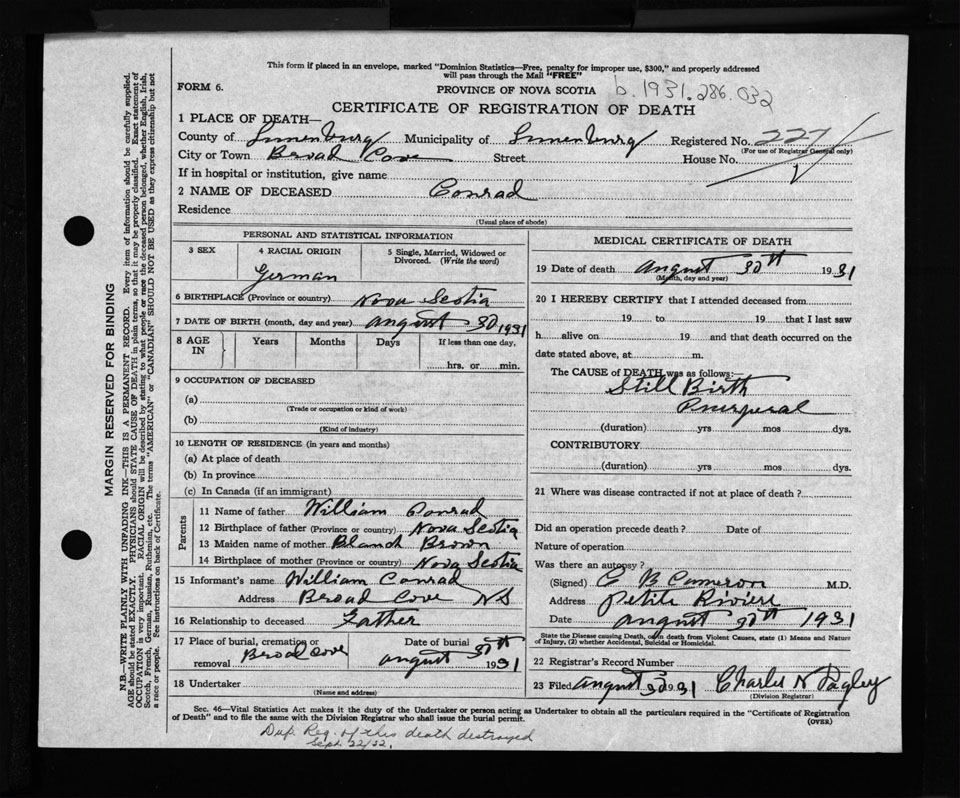 This form if placed in an envelope, marked "Dominion Statistics—Free, penalty for improper use, $300," and properly addressed
will pass through the Mail "FREE"
FORM 6.
PROVINCE OF NOVA SCOTIA b.1931.286.032
CERTIFICATE OF REGISTRATION OF DEATH
1 PLACE OF DEATH—
County of Lunenburg Municipality of Lunenburg Registered No. 227
(For use of Registrar General only)
City or Town Broad Cove Street House No.
If in hospital or institution, give name
2 NAME OF DECEASED Conrad
Residence
(Usual place of abode)
PERSONAL AND STATISTICAL INFORMATION
3 SEX
4 RACIAL ORIGIN
German
5 Single, Married, Widowed or
Divorced. (Write the word)
6 BIRTHPLACE (Province or country) Nova Scotia
7 DATE OF BIRTH (month, day and year) August 30 1931
8 AGE
IN
Years Months Days If less than one day,
hrs. or min.
9 OCCUPATION OF DECEASED
(a)
(Trade or occupation or kind of work)
(b)
(Kind of industry)
10 LENGTH OF RESIDENCE (in years and months)
(a) At place of death
(b) In province
(c) In Canada (if an immigrant)
Parents
11 Name of father William Conrad
12 Birthplace of father (Province or country) Nova Scotia
13 Maiden name of mother Blanch Brown
14 Birthplace of mother (Province or country) Nova Scotia
15 Informant's name William Conrad
Address Broad Cove NS
16 Relationship to deceased Father
17 Place of burial, cremation or
removal Broad Cove
Date of burial
August 30th 1931
18 Undertaker
(Name and address)
MEDICAL CERTIFICATE OF DEATH
19 Date of death August 30th 1931
(Month, day and year)
20 I HEREBY CERTIFY that I attended deceased from
19 to 19 that I last saw
h alive on 19 and that death occurred on the
date stated above, at m.
The CAUSE of DEATH was as follows:—
Still Birth
Puerperal
(duration) yrs mos dys.
CONTRIBUTORY
(duration) yrs. mos. dys.
21 Where was disease contracted if not at place of death?
Did an operation precede death? Date of
Nature of operation
Was there an autopsy?
(Signed) C B Cameron M.D.
Address Petite Riviere
Date August 30th 1931
State the Disease causing Death, or in death from Violent Causes, state (1) Means and Nature
of Injury, (2) whether Accidental, Suicidal or Homicidal.
22 Registrar's Record Number
23 Filed August 30 1931 Charles N
(Division Registrar)
Sec. 46—Vital Statistics Act makes it the duty of the Undertaker or person acting as Undertaker to obtain all the particulars required in the "Certificate of Registration
of Death" and to file the same with the Division Registrar who shall issue the burial permit. (OVER)
Dup. Reg. of this death destroyed
Sept. 22/32.
MARGIN RESERVED FOR BINDING
N.B.—WRITE PLAINLY WITH UNFADING INK—THIS IS A PERMANENT RECORD. Every item of information should be carefully supplied.
AGE should be stated EXACTLY. PHYSICIANS should STATE CAUSE OF DEATH in plain terms, so that it may be properly classified. Exact statement of
OCCUPATION is very important. RACIAL ORIGIN will be described by stating to what people or race the deceased person belonged, whether English, Irish,
Scotch, French, German, Russian, Ruthenian, etc. The terms "AMERICAN" or "CANADIAN" SHOULD NOT BE USED as they express citizenship but not
a race or people. See instructions on back of Certificate.